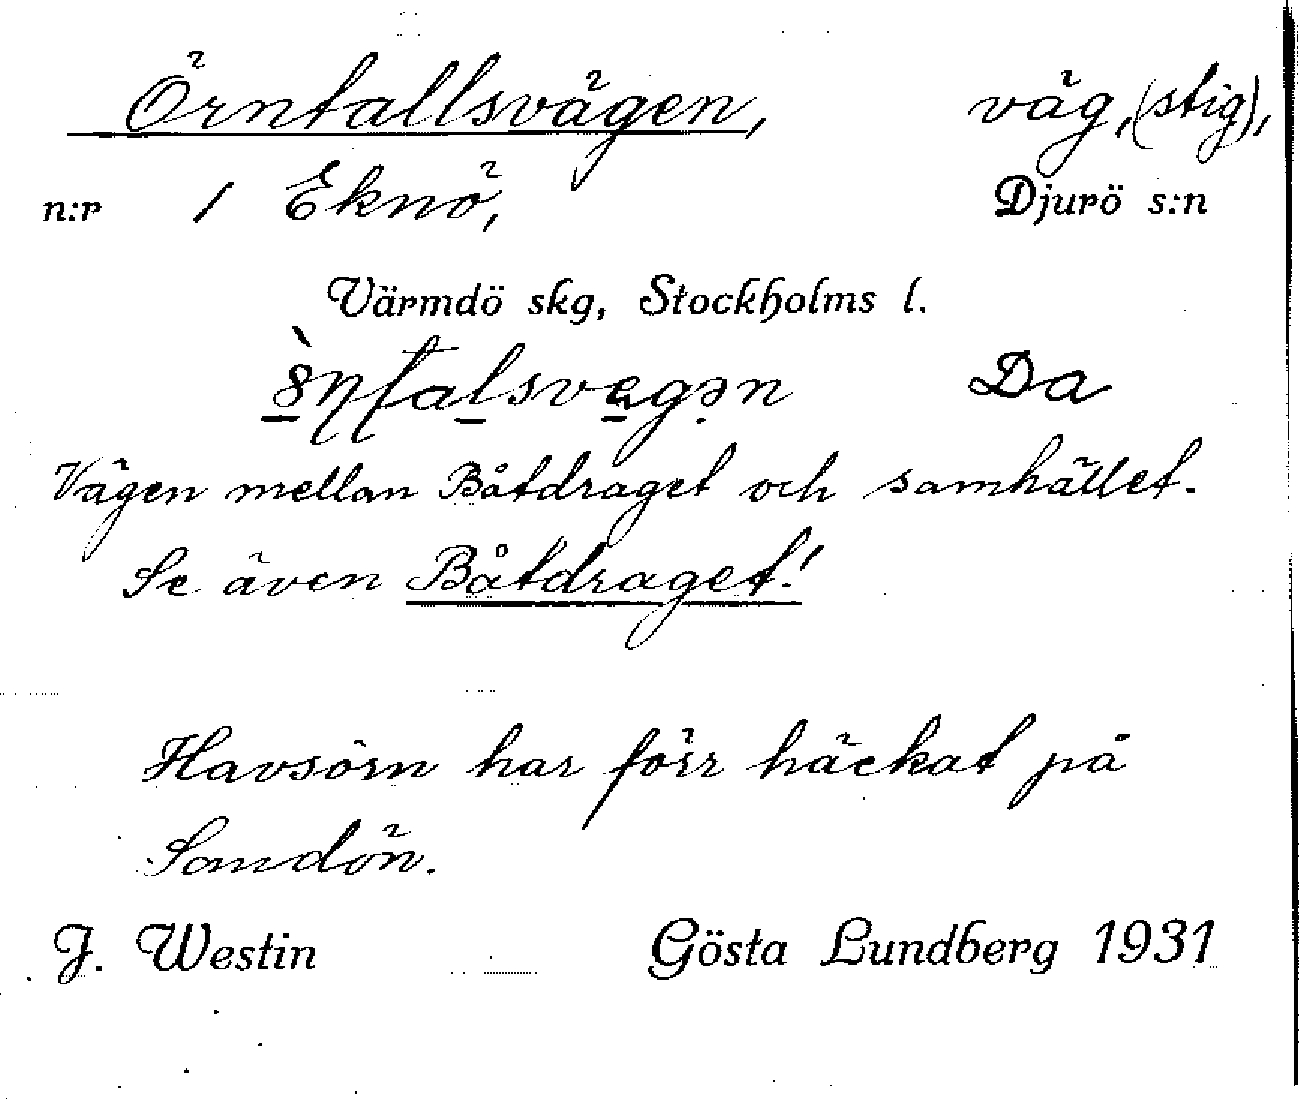 Örntallsvägen, väg, (stig),
n:r 1 Eknö, Djurö s:n
Värmdö skg, Stockholms l.
Da
Vägen mellan Båtdraget och samhället.
Se även Båtdraget!
Havsörn har förr häckat på
Samdön.
J. Westin Gösta Lundberg 1931